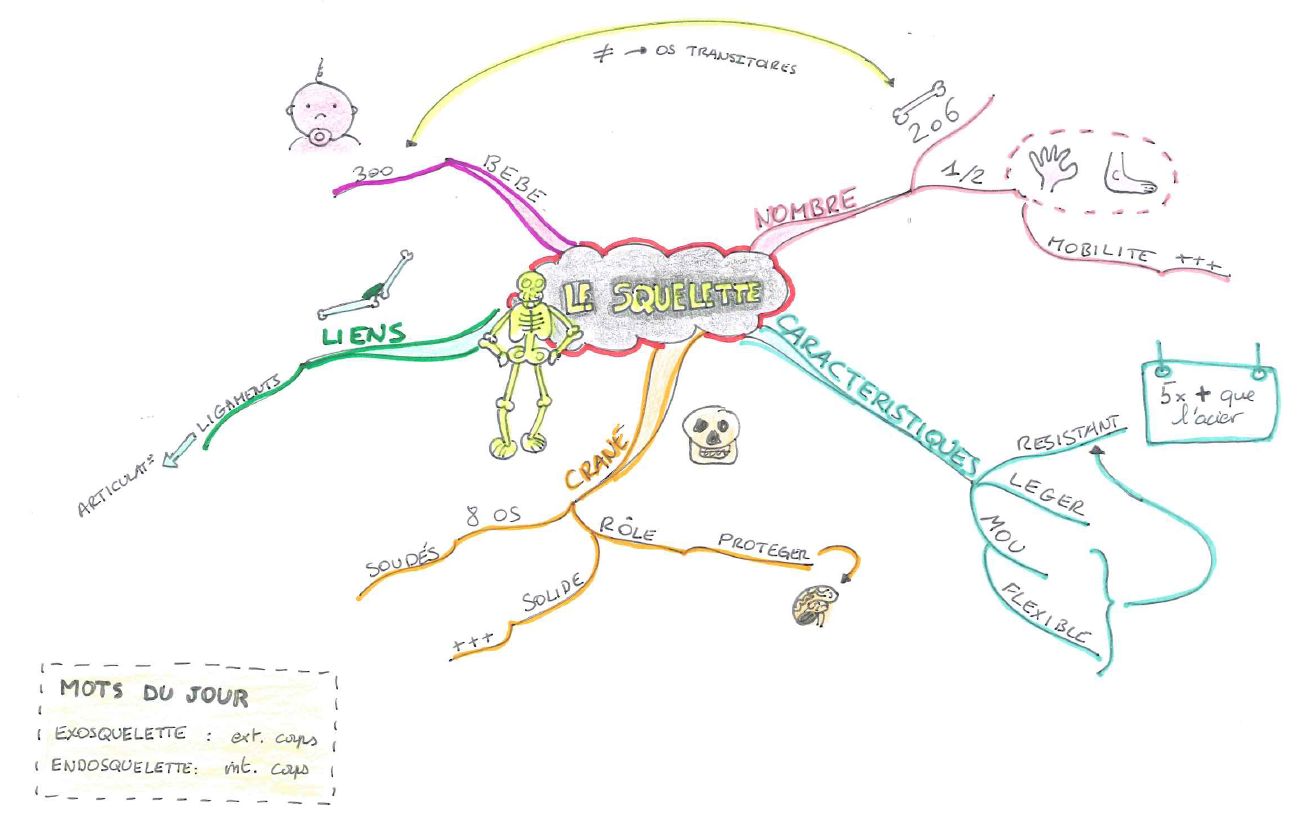 ≠ → OS TRANSITOIRES
206
1/2
MOBILITE +++
NOMBRE
BEBE
300
LE SQUELETTE
LIENS
LIGAMENTS
CARACTERISTIQUES
RESISTANT
5x + que
l'acier
LEGER
MOU
FLEXIBLE
CRANE
8 OS
SOUDÉS
RÔLE
PROTEGER
SOLIDE
+++
MOTS DU JOUR
EXOSQUELETTE : ext. corps
ENDOSQUELETTE : int. corps